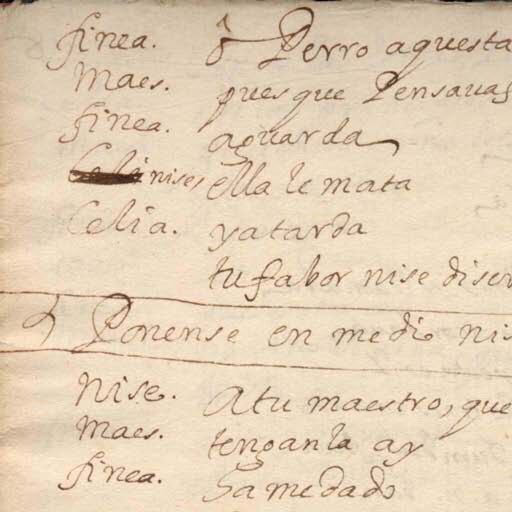 finea. ô Perro aquesta
Maes. pues que Pensauas
finea. aguarda
nise, ella le mata
Celia. ya tarda
tu fabor nise discr
Ponense en medio nis
Nise. A tu maestro, que
Maes. tenganla ay
finea. hame dado